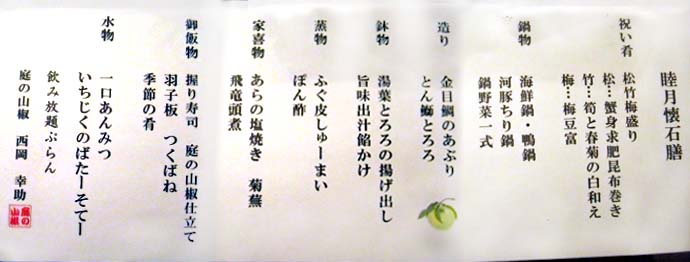 睦月懐石膳
祝い肴
松竹梅盛り
松…蟹身求肥昆布巻き
竹…筍と春菊の白和え
梅…梅豆富
鍋物
海鮮鍋・鴨鍋
河豚ちり鍋
鍋野菜一式
造り
金目鯛のあぶり
とん鰤とろろ
鉢物
湯葉とろろの揚げ出し
旨味出汁餡かけ
蒸物
ふぐ皮しゅーまい
ぽん酢
家喜物
あらの塩焼き 菊蕪
飛竜頭煮
御飯物
握り寿司 庭の山椒仕立て
羽子板 つくばね
季節の肴
水物
一口あんみつ
いちじくのばたーそてー
飲み放題ぷらん
庭の山椒 西岡 幸助
庭の山椒